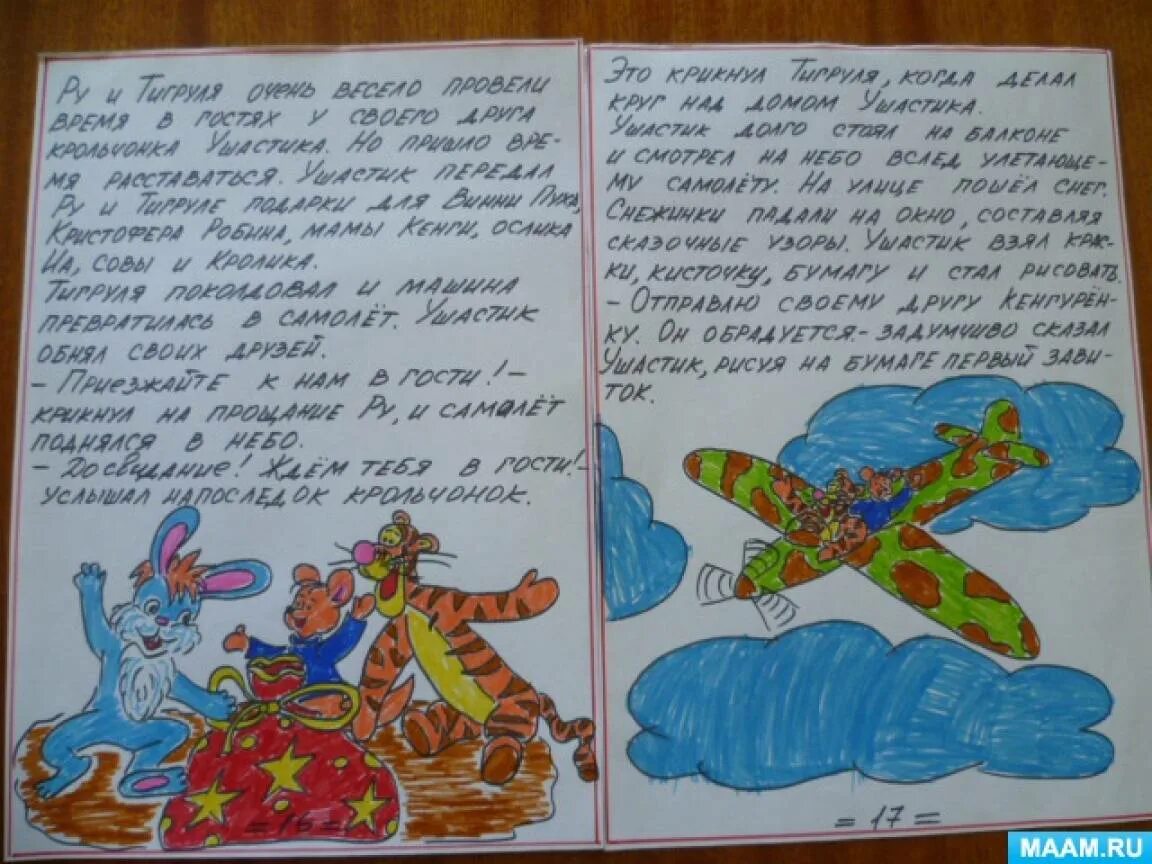 Ру и Тигруля очень весело провели
время в гостях у своего друга
крольчонка Ушастика. Но пришло вре-
мя расставаться. Ушастик передал
Ру и Тигруле подарки для Винни Пуха,
Кристофера Робина, мамы Кенги, ослика
Иа, Совы и Кролика.
Тигруля поколдовал и машина
превратилась в самолёт. Ушастик
обнял своих друзей.
– Приезжайте к нам в гости! –
крикнул на прощание Ру, и самолёт
поднялся в небо.
– До свидание! Ждём тебя в гости! –
услышал напоследок крольчонок.
= 16 =
Это крикнул Тигруля, когда делал
круг над домом Ушастика.
Ушастик долго стоял на балконе
и смотрел на небо вслед улетающе-
му самолёту. На улице пошёл снег.
Снежинки падали на окно, составляя
сказочные узоры. Ушастик взял крас-
ки, кисточку, бумагу и стал рисовать.
– Отправлю своему другу Кенгурён-
ку. Он обрадуется. – задумчиво сказал
Ушастик, рисуя на бумаге первый зави-
ток.
= 17 =
MAAM.RU